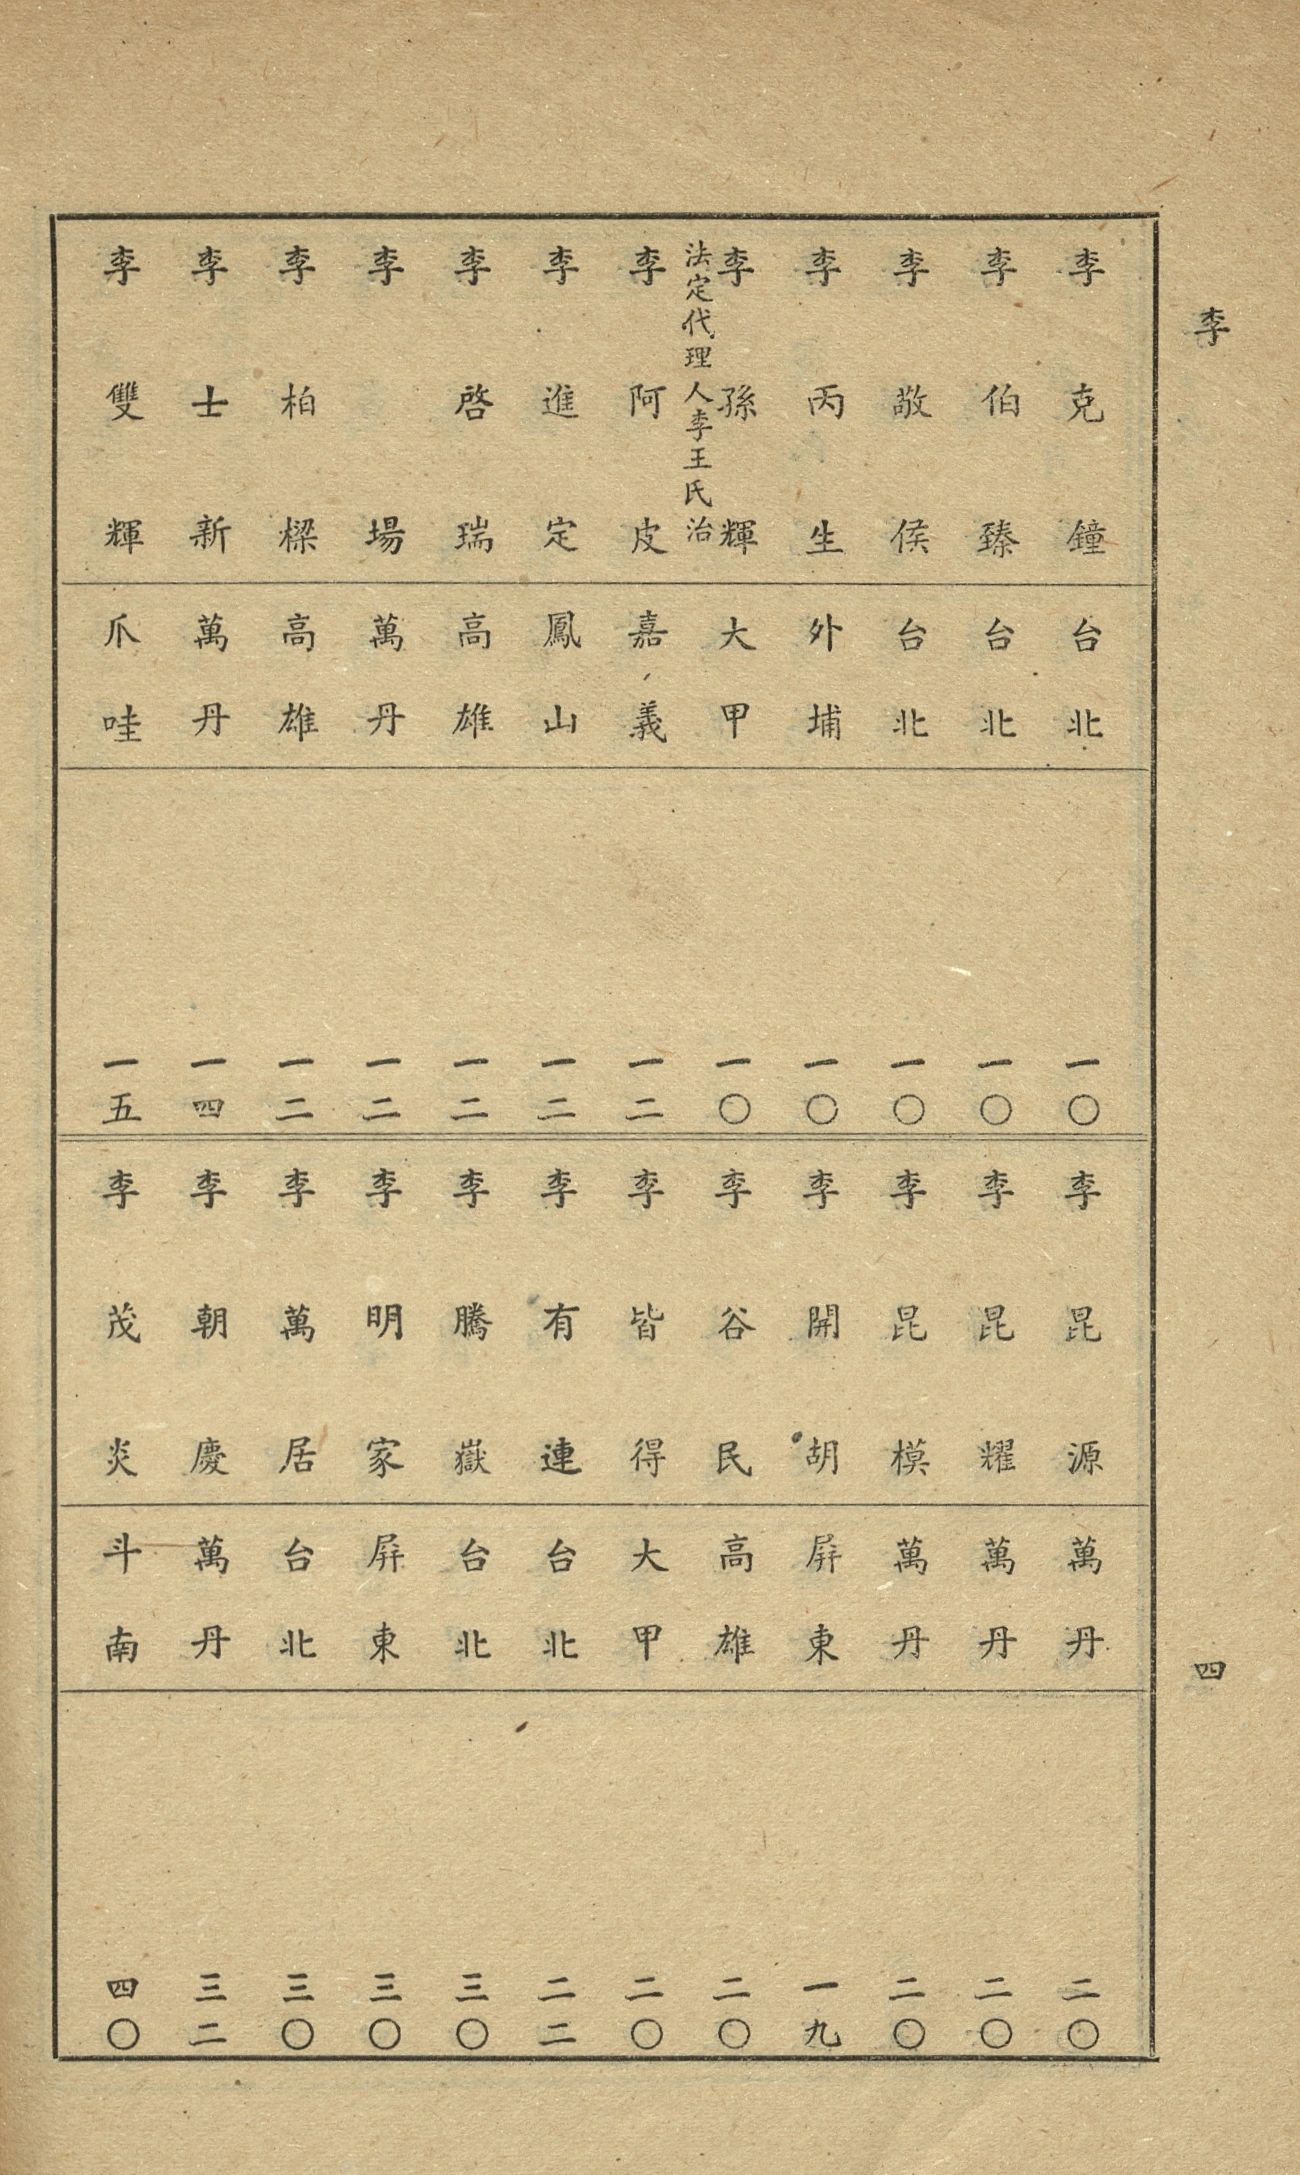 李 四
李克鐘 台北 一〇
李伯臻 台北 一〇
李敬侯 台北 一〇
李丙生 外埔 一〇
李孫輝 大甲 一〇
法定代理人李王氏治
李阿皮 嘉義 一二
李進定 鳳山 一二
李啓瑞 高雄 一二
李場 萬丹 一二
李柏樑 高雄 一二
李士新 萬丹 一四
李雙輝 爪哇 一五
李昆源 萬丹 二〇
李昆耀 萬丹 二〇
李昆模 萬丹 二〇
李開胡 屏東 一九
李谷民 高雄 二〇
李皆得 大甲 二〇
李有連 台北 二二
李騰嶽 台北 三〇
李明家 屏東 三〇
李萬居 台北 三〇
李朝慶 萬丹 三二
李茂炎 斗南 四〇